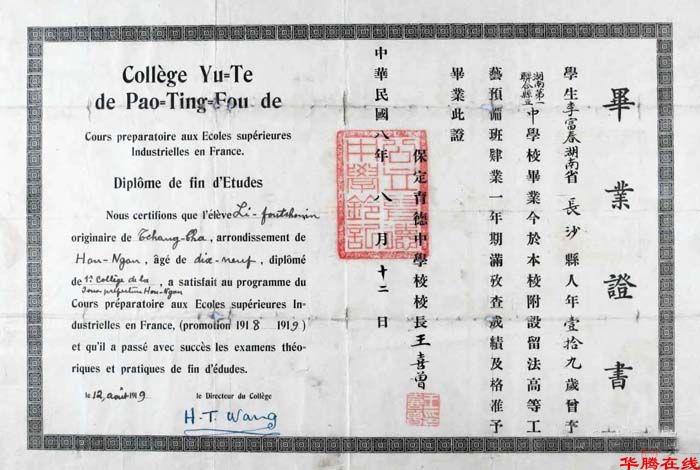 Collège Yu=Te
de Pao=Ting=Fou de
Cours preparatoire aux Ecoles supérieures
Industrielles en France.
Diplôme de fin d'Etudes
Nous certifions que l'élève Li-foutchouin
originaire de Tchang-Cha, arrondissement de
Hou-Ngan, âgé de dix-neuf, diplômé
de 1er Collège de la
Sous préfecture Hou-Ngan, a satisfait au programme du
Cours préparatoire aux Ecoles supérieures In-
dustrielles en France, (promotion 1918 1919)
et qu'il a passé avec succès les examens théo-
riques et pratiques de fin d'édudes.
le 12, août 1919
le Directeur du Collège
H-T. Wang
畢業證書
學生李富春湖南省長沙縣人年壹拾九歲曾在
湖南第一
聯合縣立
中學校畢業今於本校附設留法高等工
藝預備班肄業一年期滿攷查成績及格准予
畢業此證
保定育德中學校校長王喜曾
中華民國八年八月十二日
华腾在线